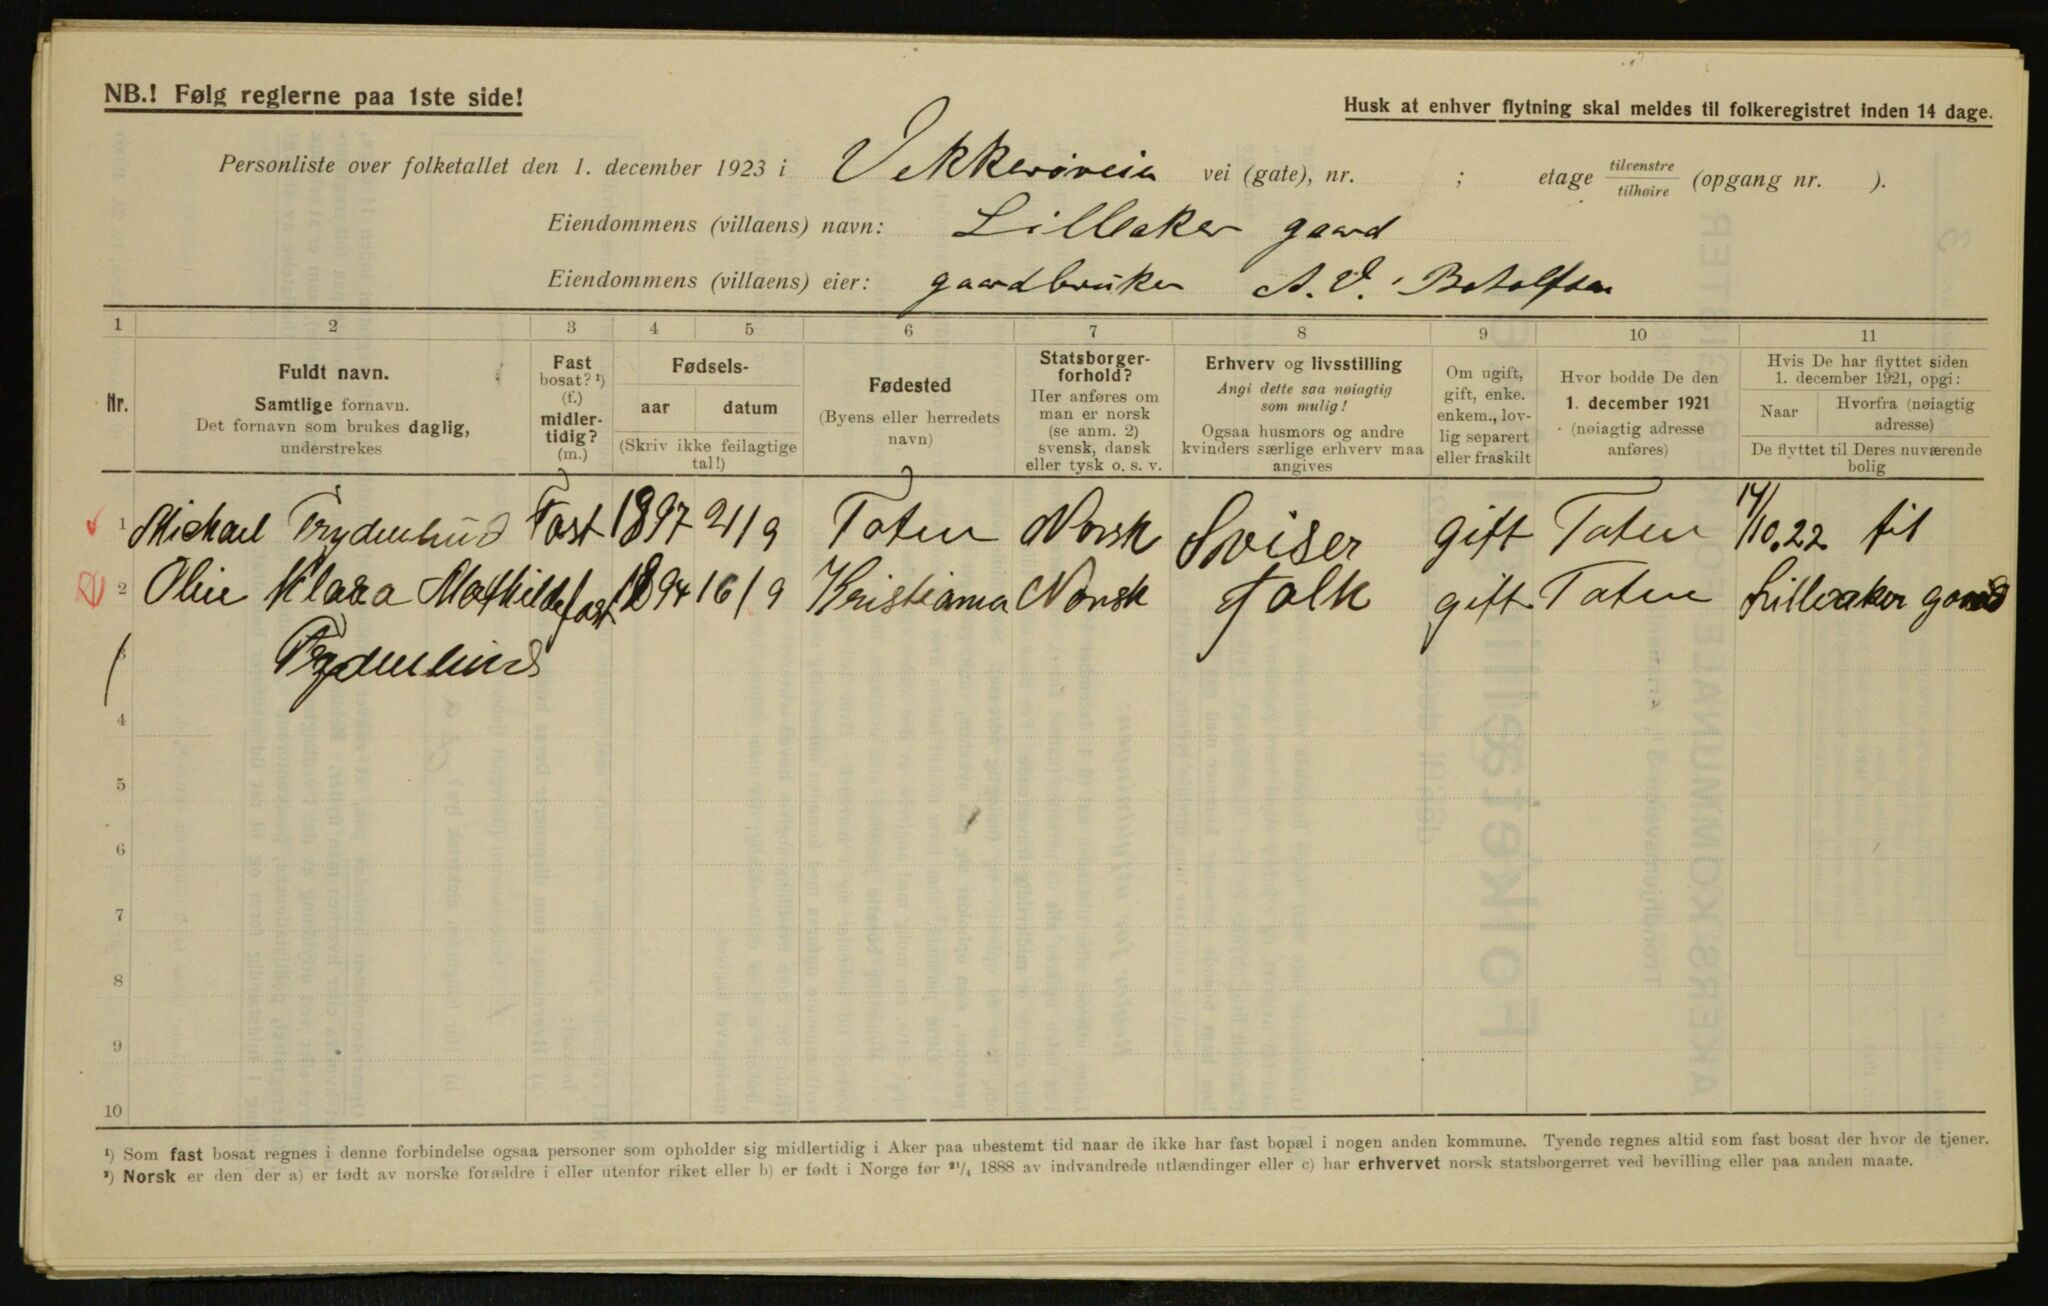 NB.! Følg reglerne paa 1ste side!
Husk at enhver flytning skal meldes til folkeregistret inden 14 dage.
Personliste over folketallet den 1. december 1923 i Vekkerøveien vei (gate), nr. ; etage tilvenstre/tilhøire (opgang nr. ).
Eiendommens (villaens) navn: Lilleaker gaard
Eiendommens (villaens) eier: gaardbruker A. V. Botolfsen
1 2 3 4 5 6 7 8 9 10 11
Nr.
Fuldt navn.
Samtlige fornavn.
Det fornavn som brukes daglig,
understrekes
Fast
bosat? ¹)
(f.)
midler-
tidig?
(m.)
Fødsels-
aar datum
(Skriv ikke feilagtige
tal!)
Fødested
(Byens eller herredets
navn)
Statsborger-
forhold?
Her anføres om
man er norsk
(se anm. 2)
svensk, dansk
eller tysk o. s. v.
Erhverv og livsstilling
Angi dette saa nøiagtig
som mulig!
Ogsaa husmors og andre
kvinders særlige erhverv maa
angives
Om ugift,
gift, enke.
enkem., lov-
lig separert
eller fraskilt
Hvor bodde De den
1. december 1921
(nøiagtig adresse
anføres)
Hvis De har flyttet siden
1. december 1921, opgi:
Naar
Hvorfra (nøiagtig
adresse)
De flyttet til Deres nuværende
bolig
1 Michael Trydenlund Fast 1897 21/9 Toten Norsk Sviser gift Toten 17/10.22 til
2 Oline Klara Mathilde fast 1894 16/9 Kristiania Norsk gift Toten Lilleaker gaard
3 Trydenlund
4
5
6
7
8
9
10
¹) Som fast bosat regnes i denne forbindelse ogsaa personer som opholder sig midlertidig i Aker paa ubestemt tid naar de ikke har fast bopæl i nogen anden kommune. Tyende regnes altid som fast bosat der hvor de tjener.
²) Norsk er den der a) er født av norske forældre i eller utenfor riket eller b) er født i Norge før ²¹/₄ 1888 av indvandrede utlændinger eller c) har erhvervet norsk statsborgerret ved bevilling eller paa anden maate.